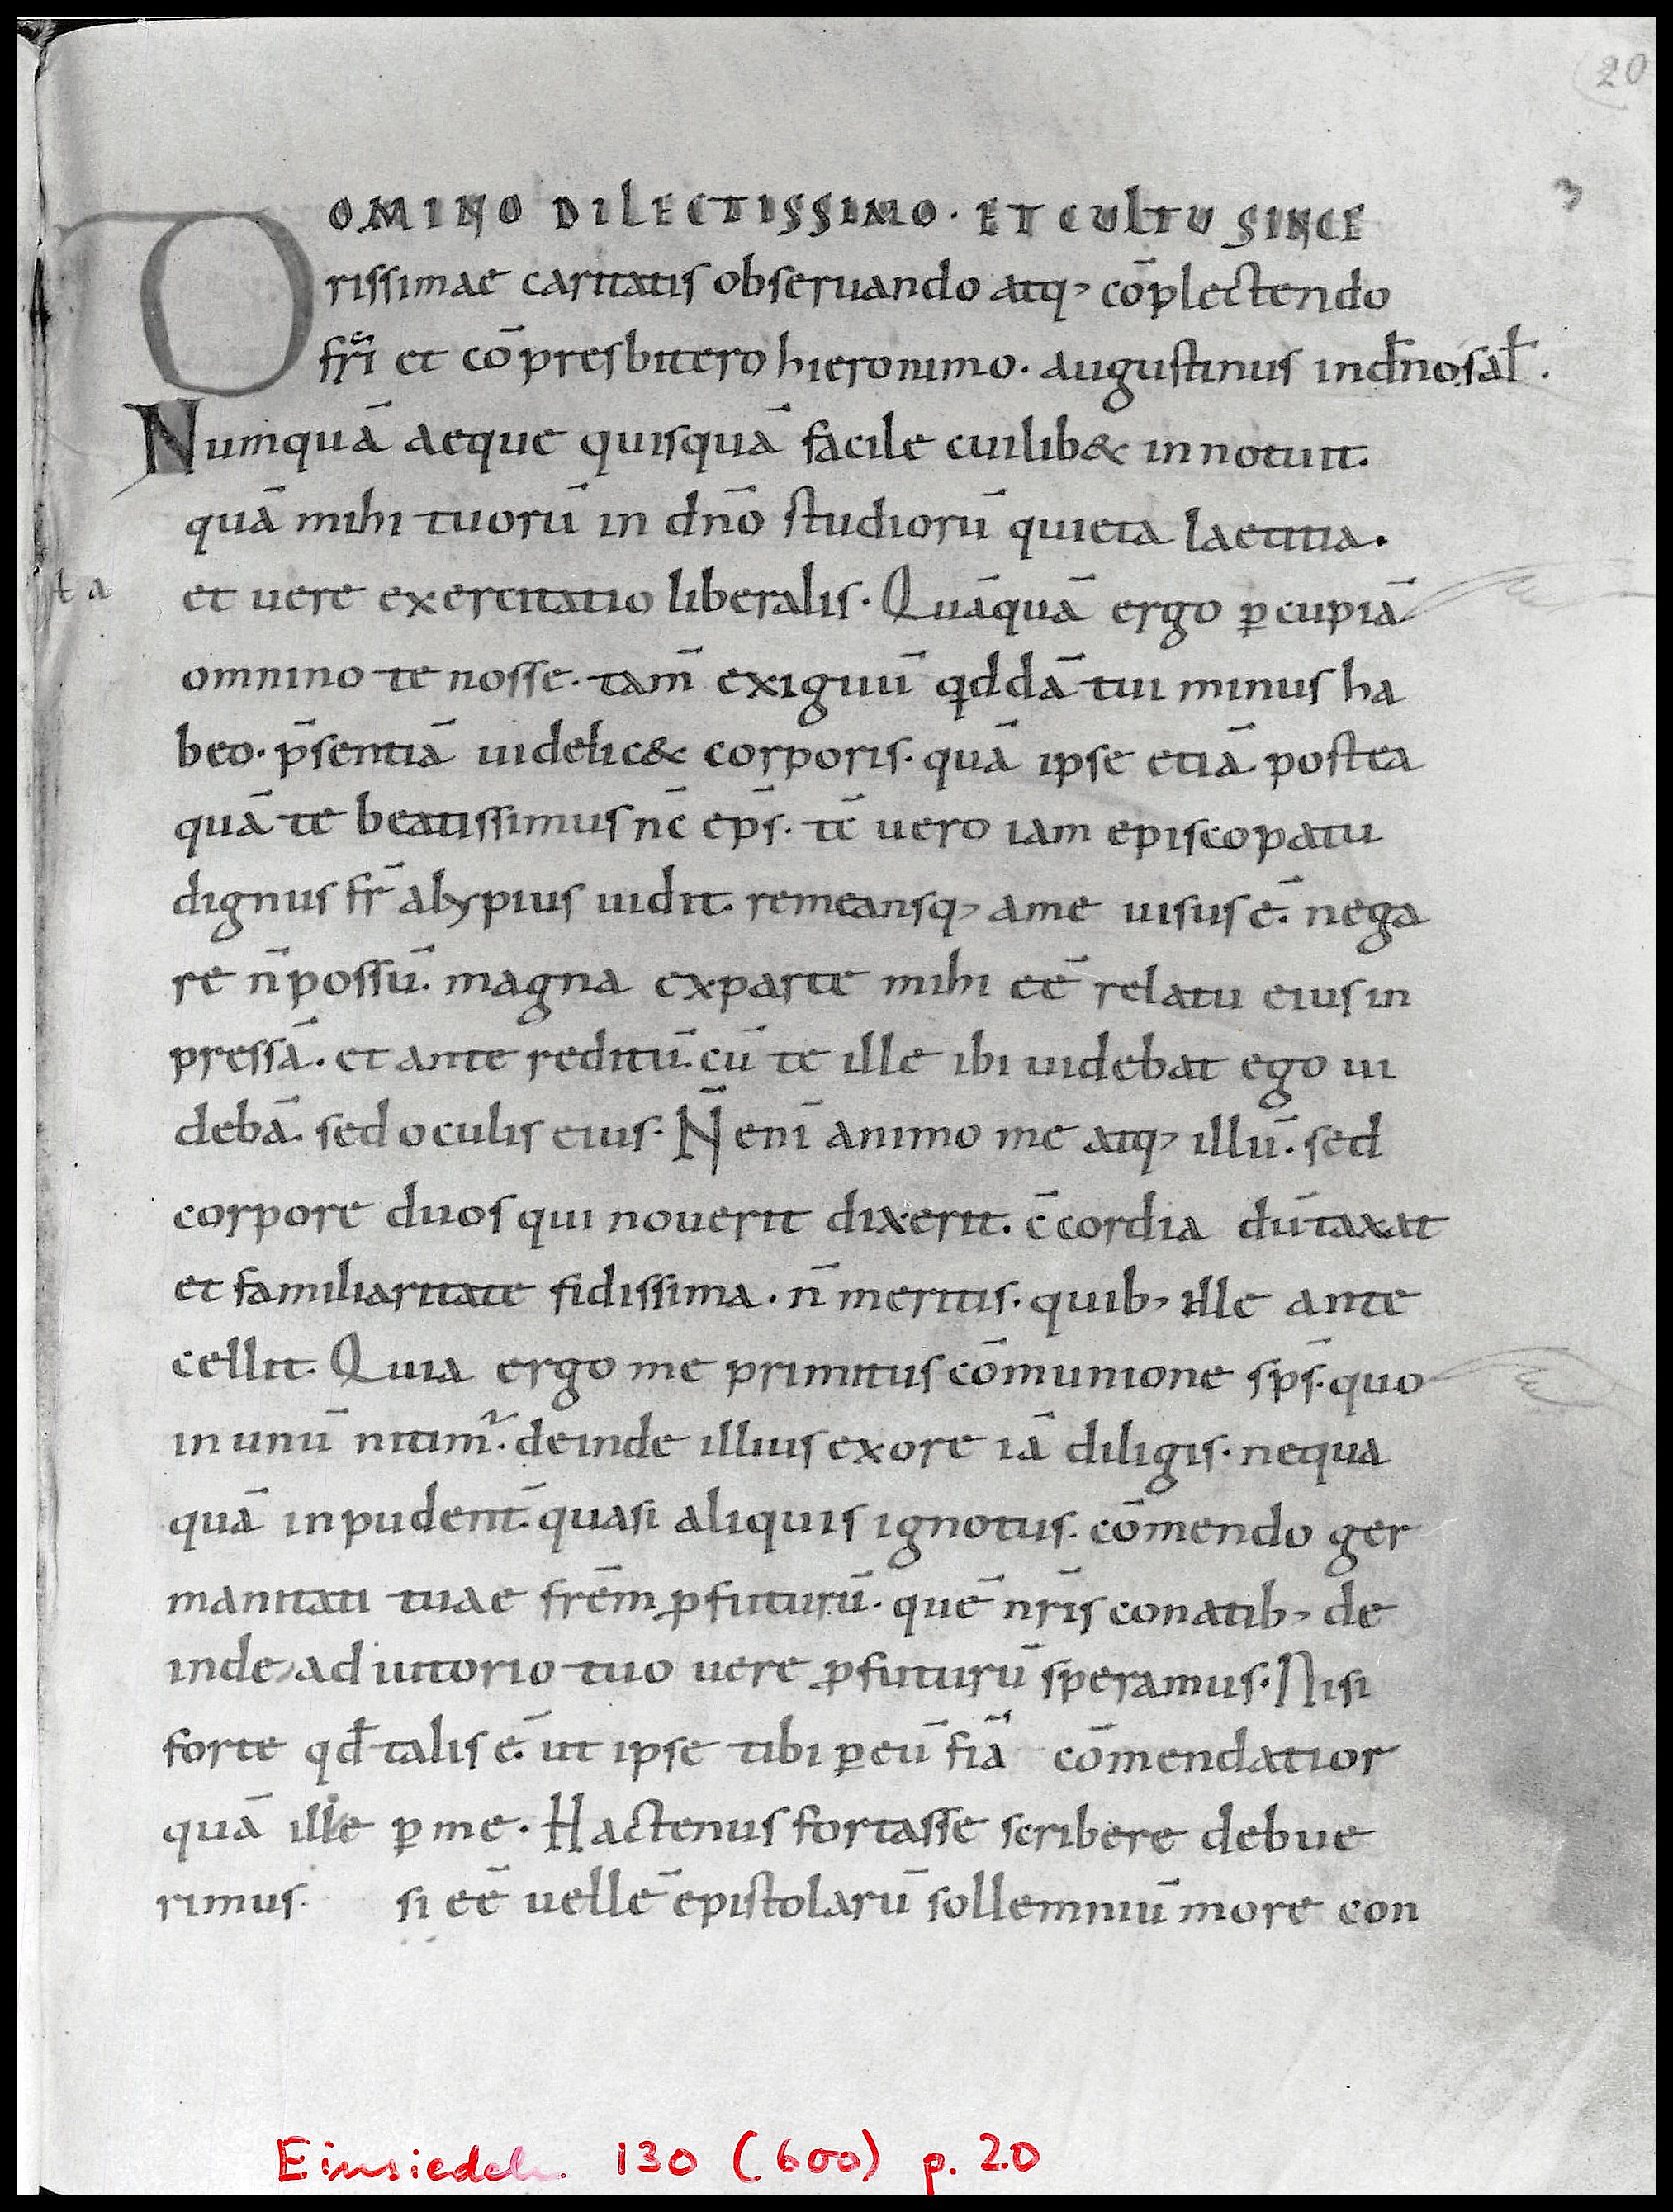 20
3
DOMINO DILECTISSIMO· ET CULTU SINCE
rissimae caritatis obseruando atq; cōplectendo
fr̄i et cōpresbitero hieronimo. augustinus in dn̄o sal̄.
Numquā aeque quisquā facile cuilib& innotuit.
quā mihi tuorū in dn̄o studiorū quieta laetitia.
et uere exercitatio liberalis. Quāquā ergo ꝑcupiā
ta
omnino te nosse. tam̄ exiguū qddā tui minus ha
beo. p̄sentiā uidelic& corporis. quā ipse etiā postea
quā te beatissimus nc̄ ep̄s. tc̄ uero iam episcopatu
dignus fr̄ alypius uidit. remeansq; ame uisus ē. nega
re n̄ possū. magna exparte mihi eē relatu eius in
pressā. et ante reditū. cū te ille ibi uidebat ego ui
debā. sed oculis eius. N̄ enī animo me atq; illū. sed
corpore duos qui nouerit dixerit. c̄cordia dūtaxat
et familiaritate fidissima. n̄ meritis. quib; ille ante
cellit. Quia ergo me primitus cōmunione sp̄s. quo
in unū nitim᷑. deinde illius exore iā diligis. nequa
quā inpudent̄. quasi aliquis ignotus. cōmendo ger
manitati tuae frēm ꝓfuturū. quē nr̄is conatib; de
inde adiutorio tuo uere ꝓfuturū speramus. Nisi
forte qd̄ talis ē. ut ipse tibi ꝑ eū fiā cōmendatior
quā ille ꝑ me. Hactenus fortasse scribere debue
rimus. si eē uellē epistolarū sollemniū more con
Einsiedeln 130 (600) p. 20